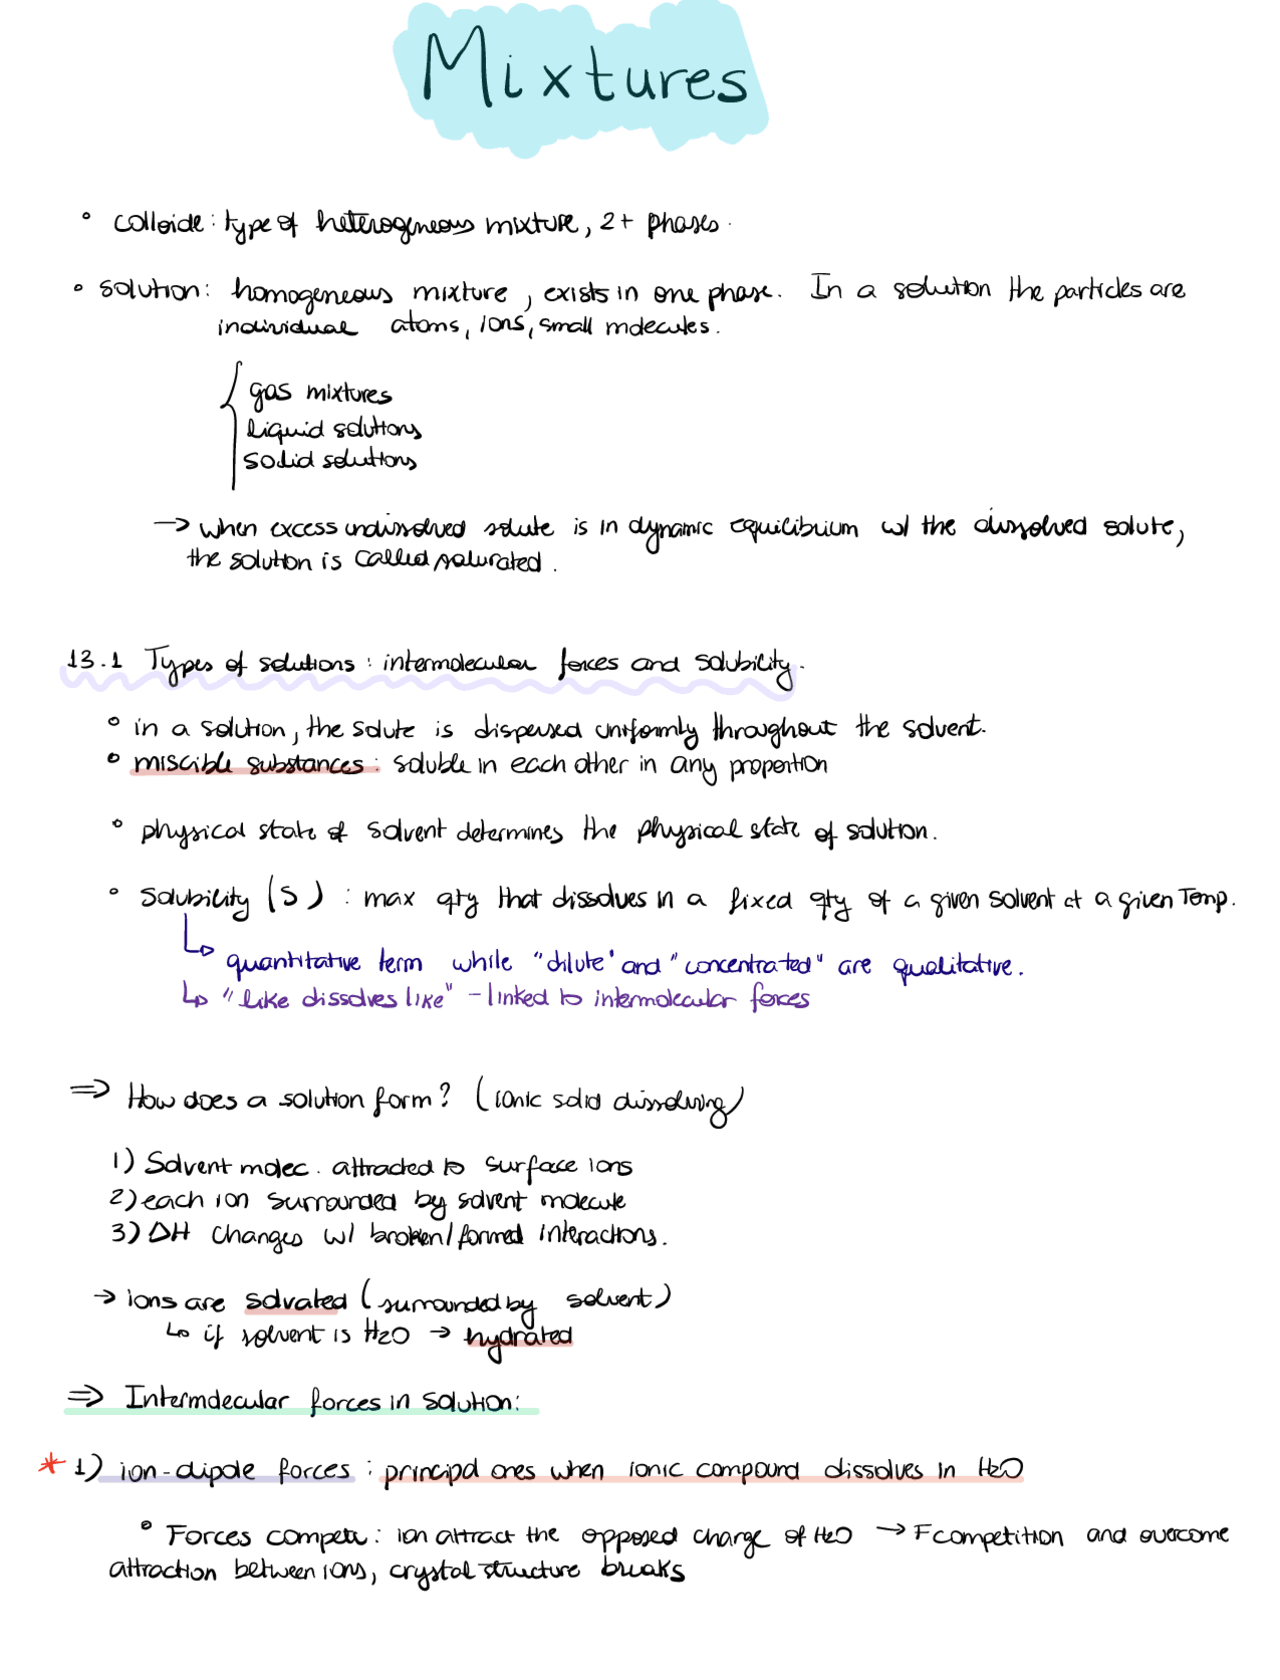 Mixtures
° colloide: type of heterogeneous mixture, 2+ phases.
° solution: homogeneous mixture, exists in one phase. In a solution the particles are
individual atoms, ions, small molecules.
gas mixtures
liquid solutions
solid solutions
→ when excess undissolved solute is in dynamic equilibrium w/ the dissolved solute,
the solution is called saturated.
13.1 Types of solutions: intermolecular forces and solubility.
° in a solution, the solute is dispersed uniformly throughout the solvent.
° miscible substances: soluble in each other in any proportion
° physical state of solvent determines the physical state of solution.
° Solubility (S): max qty that dissolves in a fixed qty of a given solvent at a given Temp.
↳ quantitative term while "dilute" and "concentrated" are qualitative.
↳ "like dissolves like" - linked to intermolecular forces
⇒ How does a solution form? (ionic solid dissolving)
1) Solvent molec. attracted to surface ions
2) each ion surrounded by solvent molecule
3) ΔH changes w/ broken/formed interactions.
→ ions are solvated (surrounded by solvent)
↳ if solvent is H2O → hydrated
⇒ Intermolecular forces in solution:
* 1) ion-dipole forces: principal ones when ionic compound dissolves in H2O
° Forces compete: ion attract the opposed charge of H2O → F competition and overcome
attraction between ions, crystal structure breaks